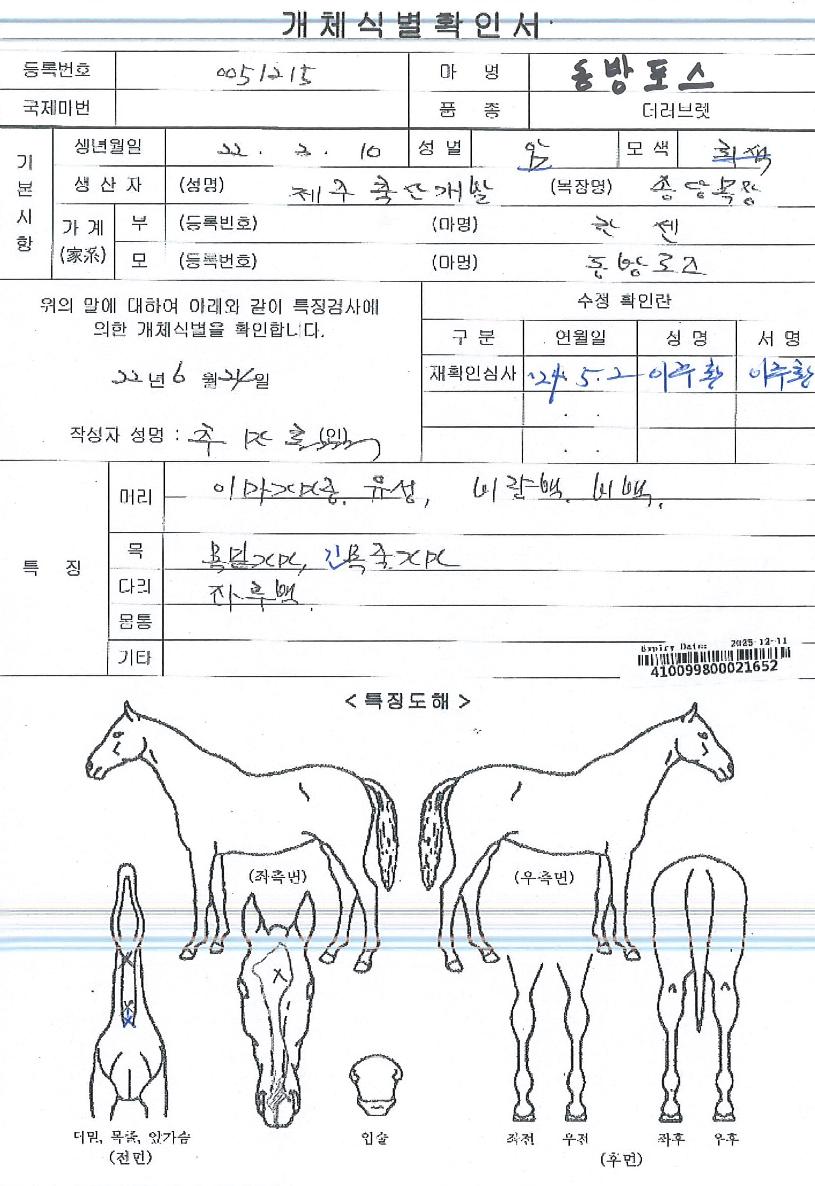 개체식별확인서
등록번호 0051215 마 명 동방포스
국제마번 품 종 더러브렛
기본사항
생년월일 22 . 2 . 10 성별 암 모색 회색
생산자 (성명) 제주축산개발 (목장명) 송당목장
가계(家系) 부 (등록번호) (마명) 한센
모 (등록번호) (마명) 동방로즈
위의 말에 대하여 아래와 같이 특징검사에
의한 개체식별을 확인합니다.
22년 6 월 24일
작성자 성명 : (인)
수정 확인란
구 분 연월일 성 명 서 명
재확인심사 '24. 5. 2 이주환 이주환
. .
. .
특 징
머리 유성, 비량백. 비백.
목
다리 좌후백.
몸통
기타
Expiry Date: 2025-12-11
410099800021652
< 특징도해 >
(좌측면) (우측면)
턱밑, 목줄, 앞가슴
(전면)
입술
좌전 우전 좌후 우후
(후면)